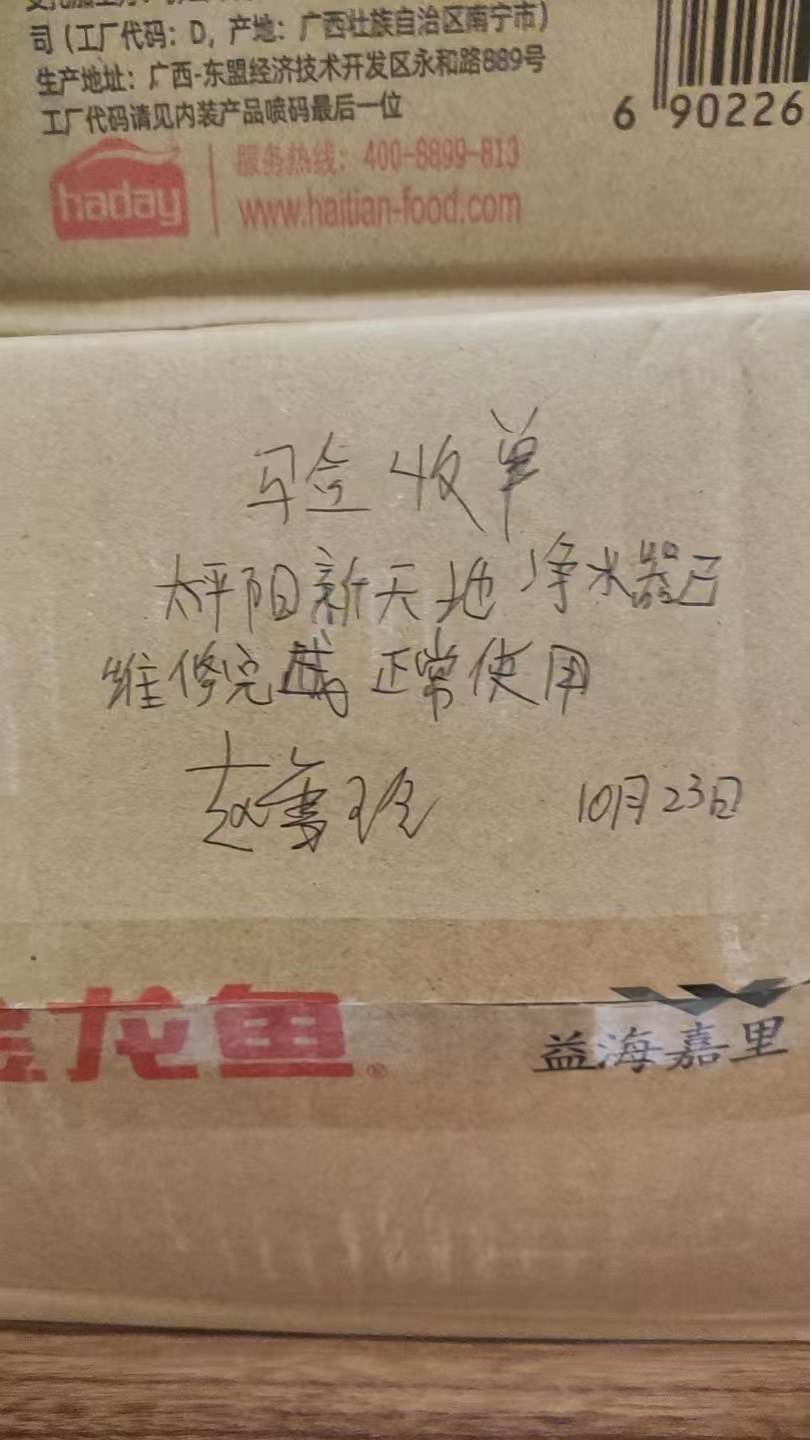 司（工厂代码：D，产地：广西壮族自治区南宁市）
生产地址：广西-东盟经济技术开发区永和路889号
工厂代码请见内装产品喷码最后一位
6 90226
haday
服务热线：400-8899-813
www.haitian-food.com
验收单
太平阳新天地净水器已
维修完成正常使用
赵雪玲
10月23日
金龙鱼®
益海嘉里